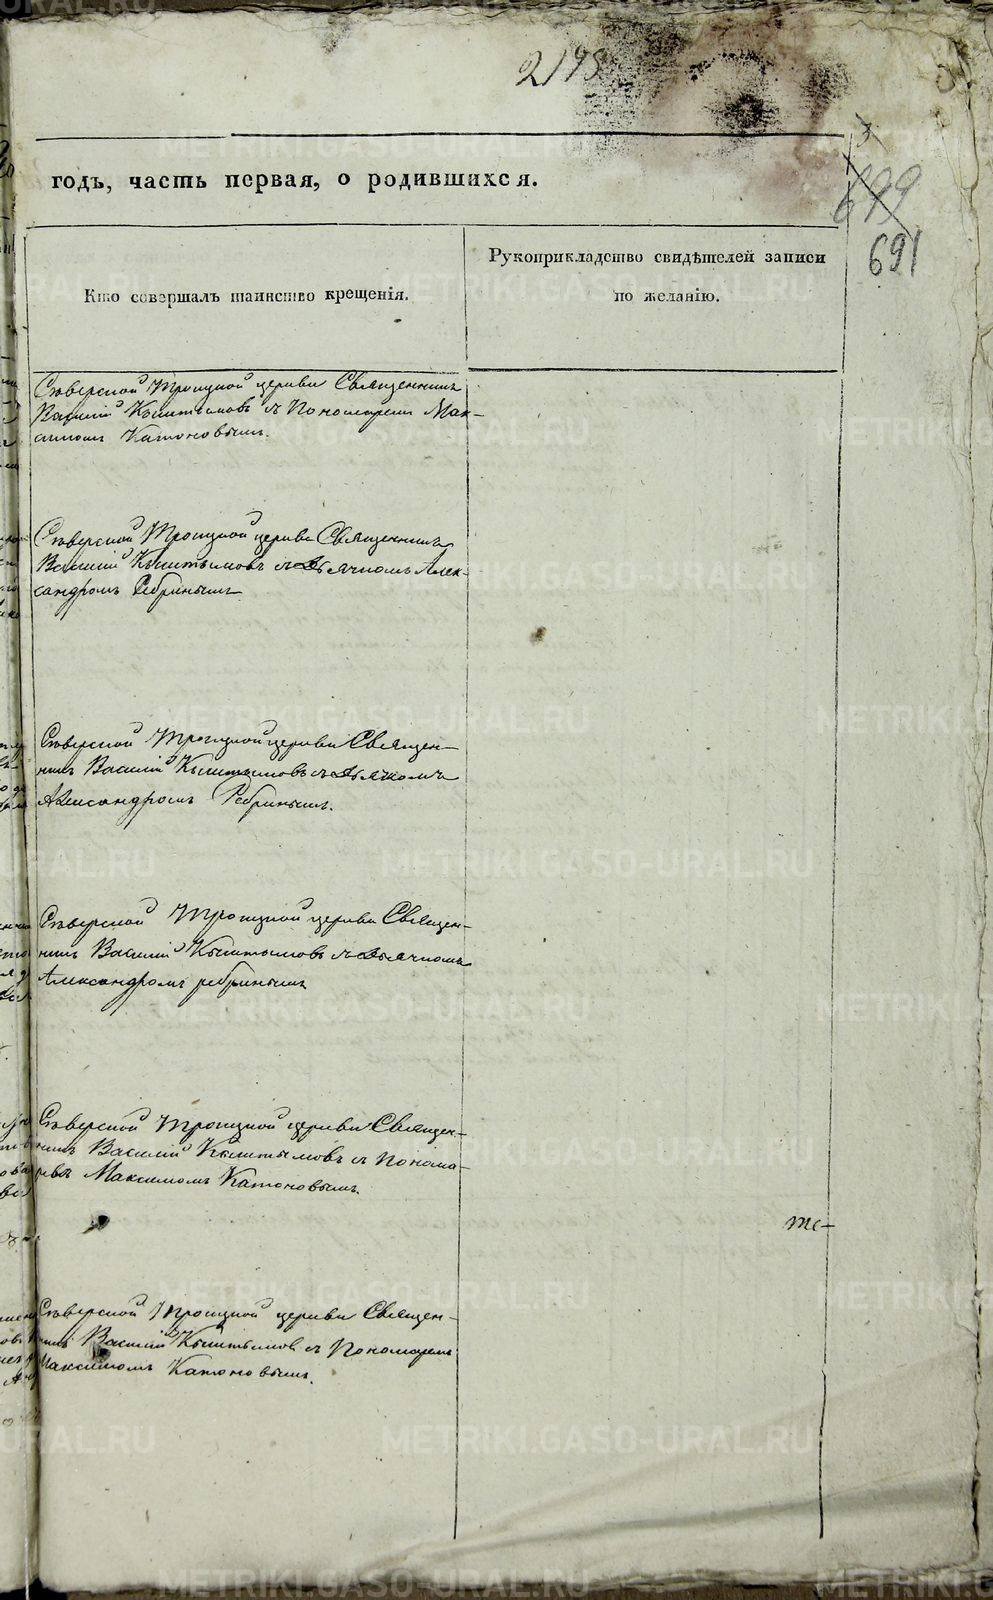 2198
3
699
691
годъ, часть первая, о родившихся.
Кто совершалъ таинство крещенія.
Рукоприкладство свидѣтелей записи
по желанію.
Сѣверской Троицкой церкви Священникъ
Василій Кыштымовъ съ Пономаремъ Мак-
симомъ Катоновымъ.
Сѣверской Троицкой церкви Священникъ
Василій Кыштымовъ съ Дьячкомъ Алек-
сандромъ Ребринымъ
Сѣверской Троицкой церкви Священ-
никъ Василій Кыштымовъ съ Дьячкомъ
Александромъ Ребринымъ.
Сѣверской Троицкой церкви Священ-
никъ Василій Кыштымовъ съ Дьячкомъ
Александромъ ребринымъ
Сѣверской Троицкой церкви Священ-
никъ Василій Кыштымовъ съ Понома-
ремъ Максимомъ Катоновымъ.
Сѣверской Троицкой церкви Священ-
никъ Василій Кыштымовъ съ Пономаремъ
Максимомъ Катоновымъ.
METRIKI.GASO-URAL.RU